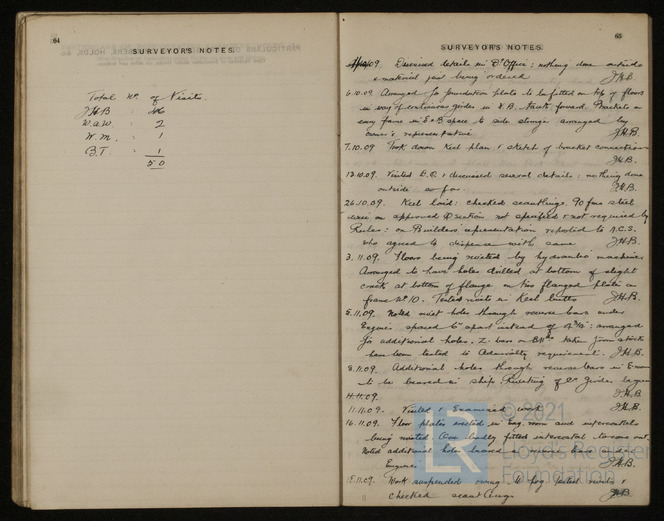 64
SURVEYOR'S NOTES.
Total No. of Visits.
J.H.B : 46
W.a.W. : 2
W.M. : 1
B.T. : 1
50
65
SURVEYOR'S NOTES.
10.09. Discussed details in D. Office; nothing done outside
& material just being ordered J.H.B.
6.10.09. Arranged for foundation plate to be fitted on top of floors
in way of continuous girder in W.B. tanks forward. Brackets on
every frame in E & B space to side stringer arranged by
owner's representative J.H.B.
7.10.09. Took down Keel plan & sketch of bracket connections
J.H.B.
13.10.09. Visited D.O. & discussed several details: nothing done
outside so far. J.H.B.
26.10.09. Keel laid: checked scantlings. 90 foot steel
on approved section not specified & not required by
Rules: on Builders representation reported to A.C.S.
who agreed to dispense with same J.H.B.
3.11.09. Floors being riveted by hydraulic machines
Arranged to have holes drilled at bottom of slight
crack at bottom of flange on two flanged plate on
frame No 10. Tested rivets in Keel butts J.H.B.
5.11.09. Noted rivet holes through reverse bars under
Engines spaced 5" apart instead of : arranged
for additional holes. Z. bars on taken from stock
have been tested to Admiralty requirement. J.H.B.
8.11.09. Additional holes through reverse bars in
to be bored in ship. Riveting of Cr. Girder begun
J.H.B.
11.11.09. Visited & Examined work J.H.B.
16.11.09. Floor plates erected in Eng. room and intercostals
being riveted. One badly fitted intercostal taken out
Noted additional holes bored in reverse bars under
Engines J.H.B.
11.09. Work suspended owing to fog tested rivets &
checked scantlings J.H.B.
© 2021
LR
Lloyd's Register
Foundation